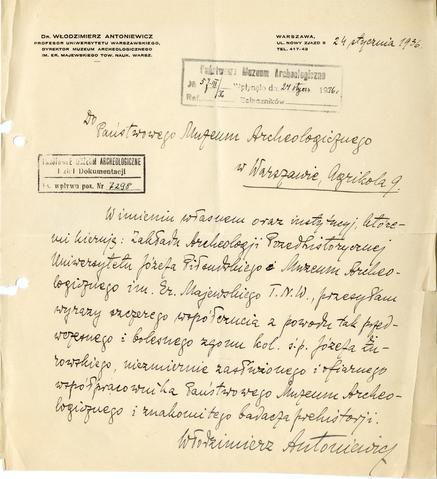 DR. WŁODZIMIERZ ANTONIEWICZ
PROFESOR UNIWERSYTETU WARSZAWSKIEGO,
DYREKTOR MUZEUM ARCHEOLOGICZNEGO
IM. ER. MAJEWSKIEGO TOW. NAUK. WARSZ.
WARSZAWA,
UL. NOWY ZJAZD 5
TEL. 417-43
24 stycznia 1936.
Państwowe Muzeum Archeologiczne
Wpłynęło dn. 24 stycz. 1936 r.
Załączników
Do
Państwowego Muzeum Archeologicznego
w Warszawie, Agrikola 9.
Państwowe Muzeum ARCHEOLOGICZNE
Dział Dokumentacji
Ks. wpływu poz. Nr 7298
W imieniu własnem oraz instytucyj, które-
mi kieruję: Zakładu Archeologji Przedhistorycznej
Uniwersytetu Józefa Piłsudskiego i Muzeum Archeo-
logicznego im. Er. Majewskiego T.N.W., przesyłam
wyrazy szczerego współczucia z powodu tak przed-
wczesnego i bolesnego zgonu kol. ś.p. Józefa Żu-
rowskiego, niezmiernie zasłużonego i ofiarnego
współpracownika Państwowego Muzeum Archeo-
logicznego i znakomitego badacza prehistorji.
Włodzimierz Antoniewicz